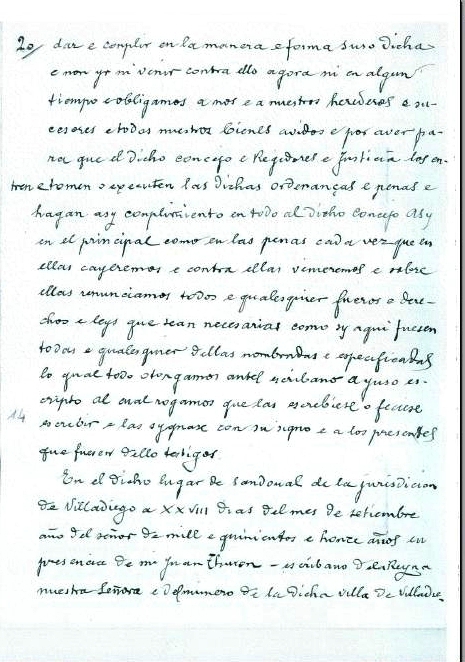 20/ dar e conplir en la manera e forma suso dicha
e non yr ni venir contra ello agora ni en algun
tiempo e obligamos a nos e a nuestros herederos e su-
cesores e todos nuestros bienes avidos e por aver pa-
ra que el dicho concejo e Regidores e justicia los en-
tren e tomen o executen las dichas ordenanças e penas e
hagan asy conplimiento en todo al dicho concejo asy
en el principal como en las penas cada vez que en
ellas cayeremos e contra ellas vinieremos e sobre
ellas renunciamos todos e qualesquier fueros o dere-
chos e leys que sean necesarias como sy aqui fuesen
todas e qualesquier dellas nombradas e especificadas
lo qual todo otorgamos antel escribano a yuso es-
cripto al cual rogamos que las escrebiese o feciese
14
escribir e las sygnase con su signo e a los presentes
que fuesen dello testigos
En el dicho lugar de Sandoual de la jurisdicion
de Villadiego a XXVIII dias del mes de setiembre
año del señor de mill e quinientos e honze años en
presencia de mi Juan - escribano de la Reyna
nuestra Señora e del numero de la dicha villa de Villadie-